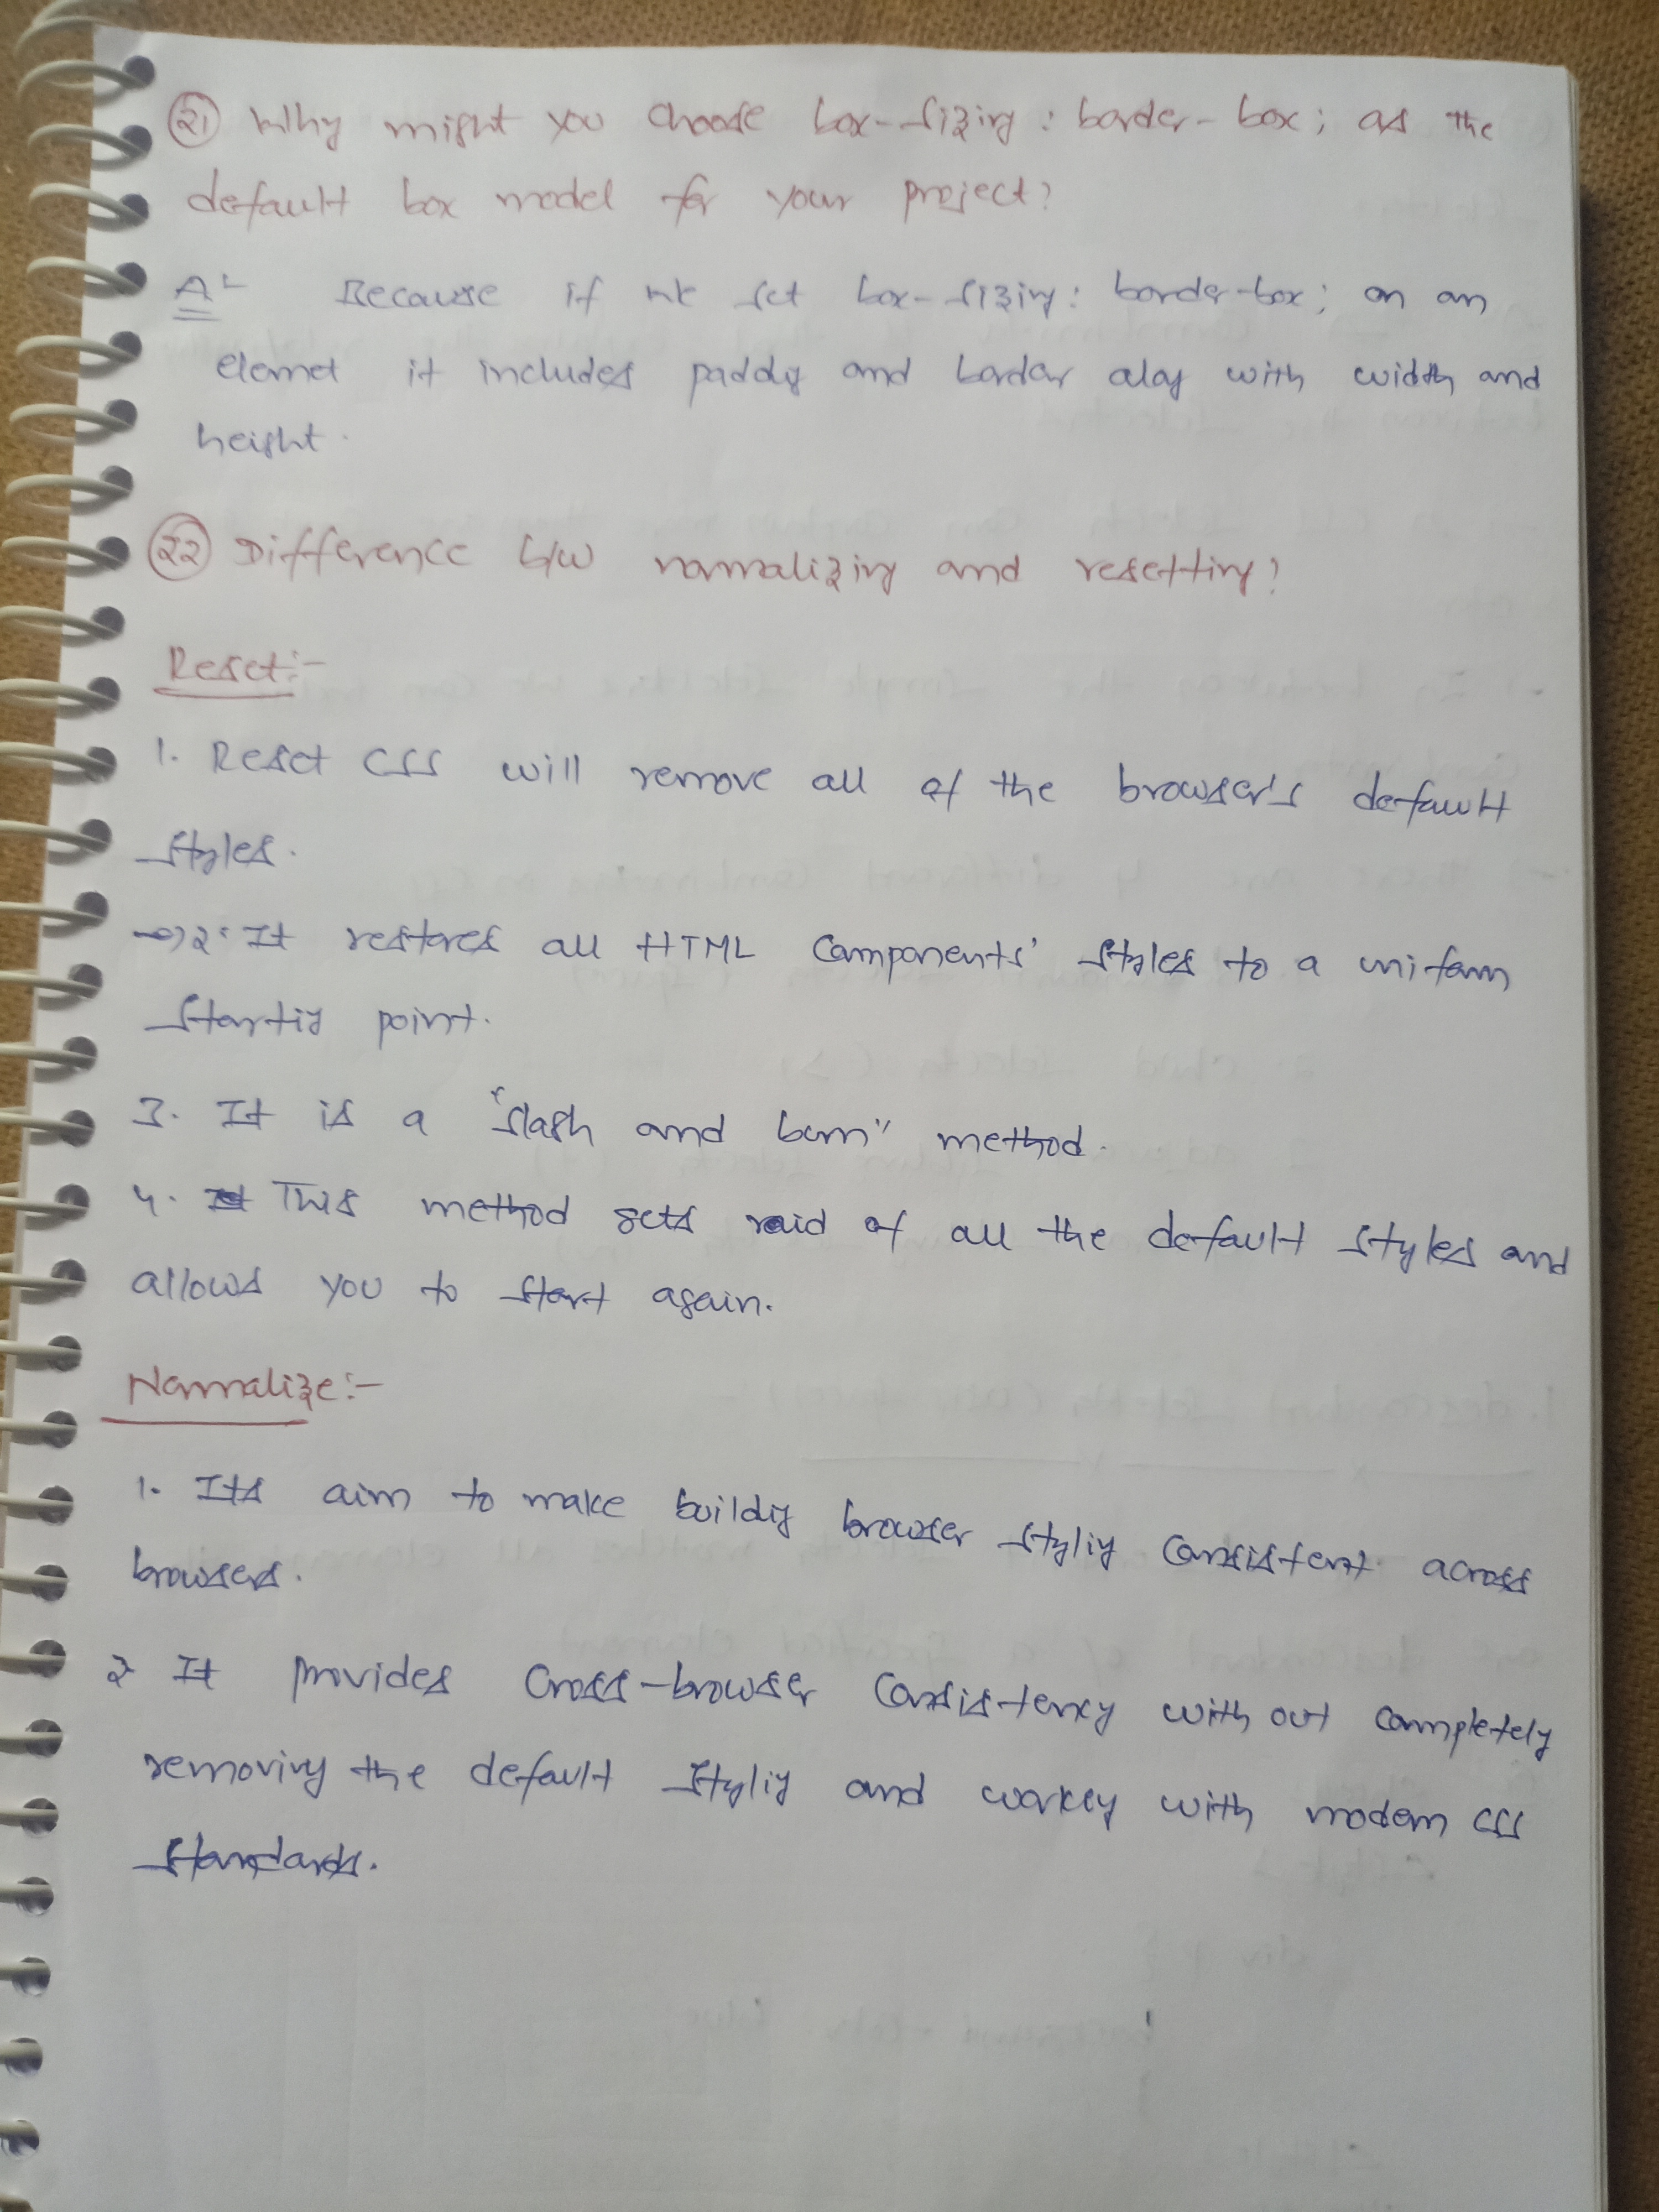 21 Why might you choose box-sizing: border-box; as the
default box model for your project?
A Because if we set box-sizing: border-box; on an
elemet it includes paddig and border alog with width and
height.
22 Difference b/w normalizing and resetting?
Reset:-
1. Reset CSS will remove all of the browser's default
styles.
→ 2. It restores all HTML components' styles to a uniform
startig point.
3. It is a "slash and burn" method.
4. This method gets raid of all the default styles and
allows you to start again.
Normalize:-
1. Its aim to make buildig browser stylig consistent across
browsers.
2 It provides cross-browser consistency with out completely
removing the default stylig and workig with modern CSS
standards.